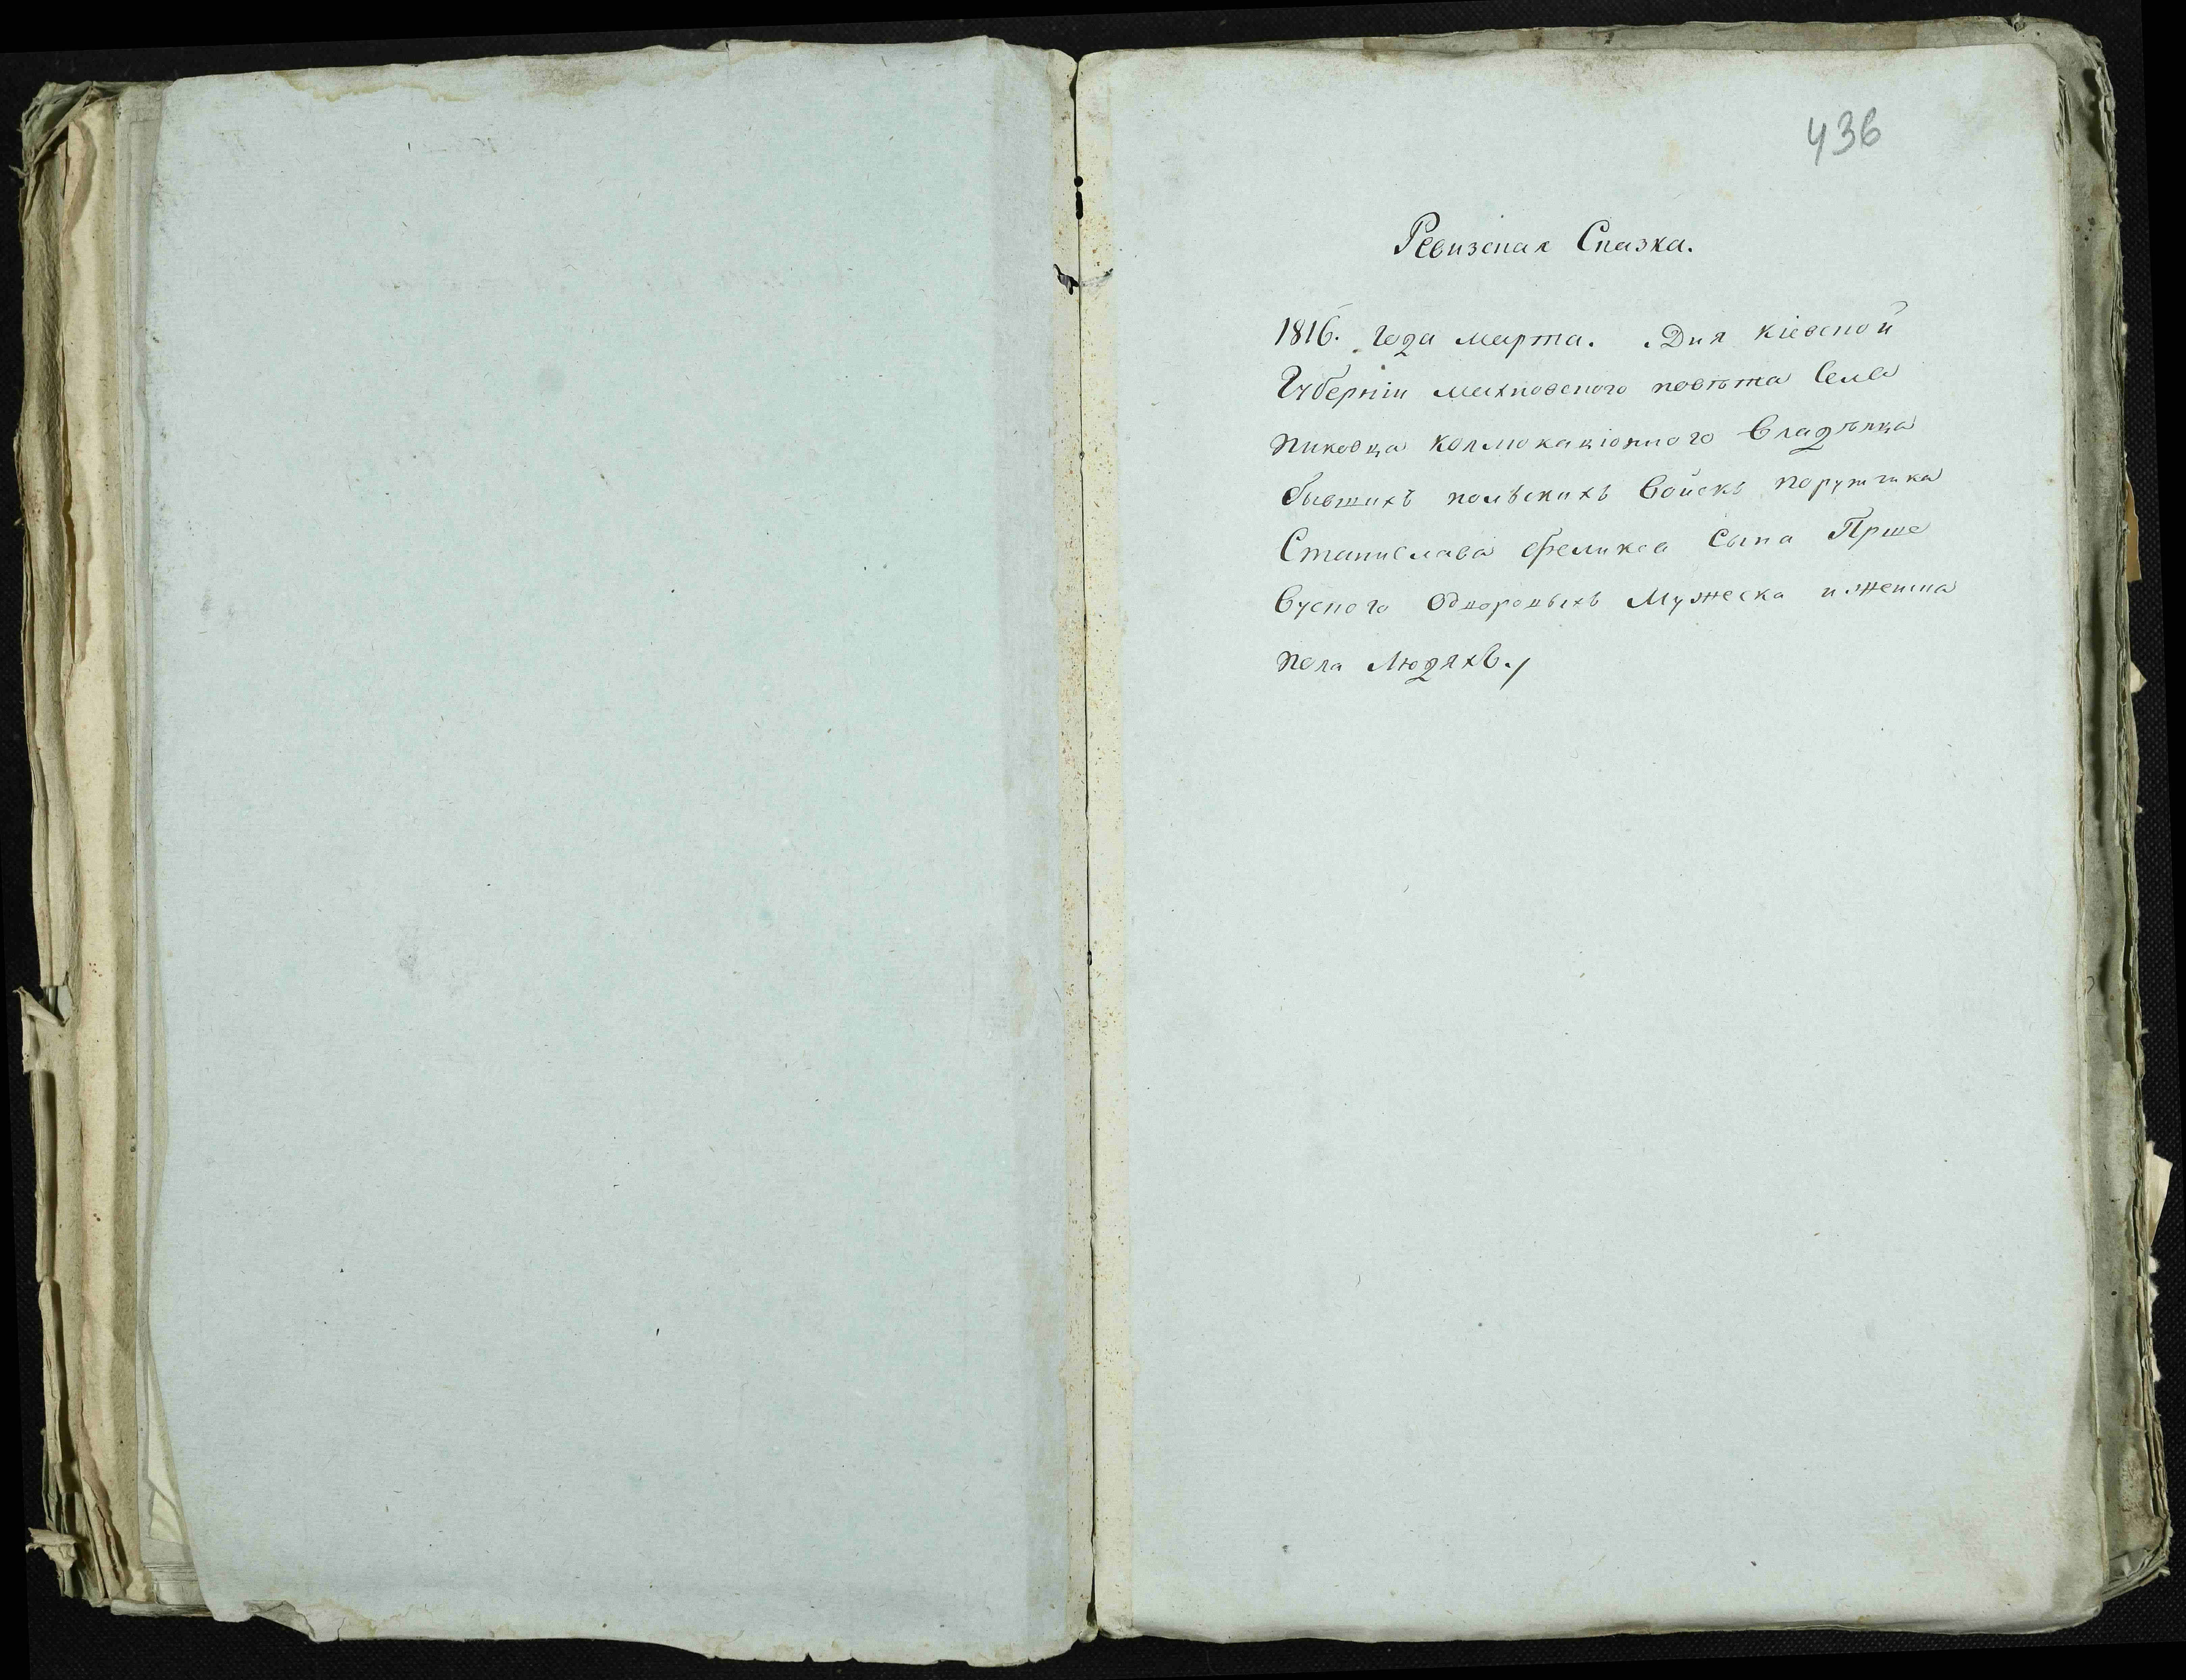 436
Ревизская Сказка.
1816. года марта. Дня кіевской
Губерніи махновского повѣта Села
Пиковца коллокаціонного Владѣлца
бывшихъ польскихъ Войскъ поручика
Станислава Феликса Сына Прше
вуского Однородныхъ Мужеска и женска
пола Людяхъ./